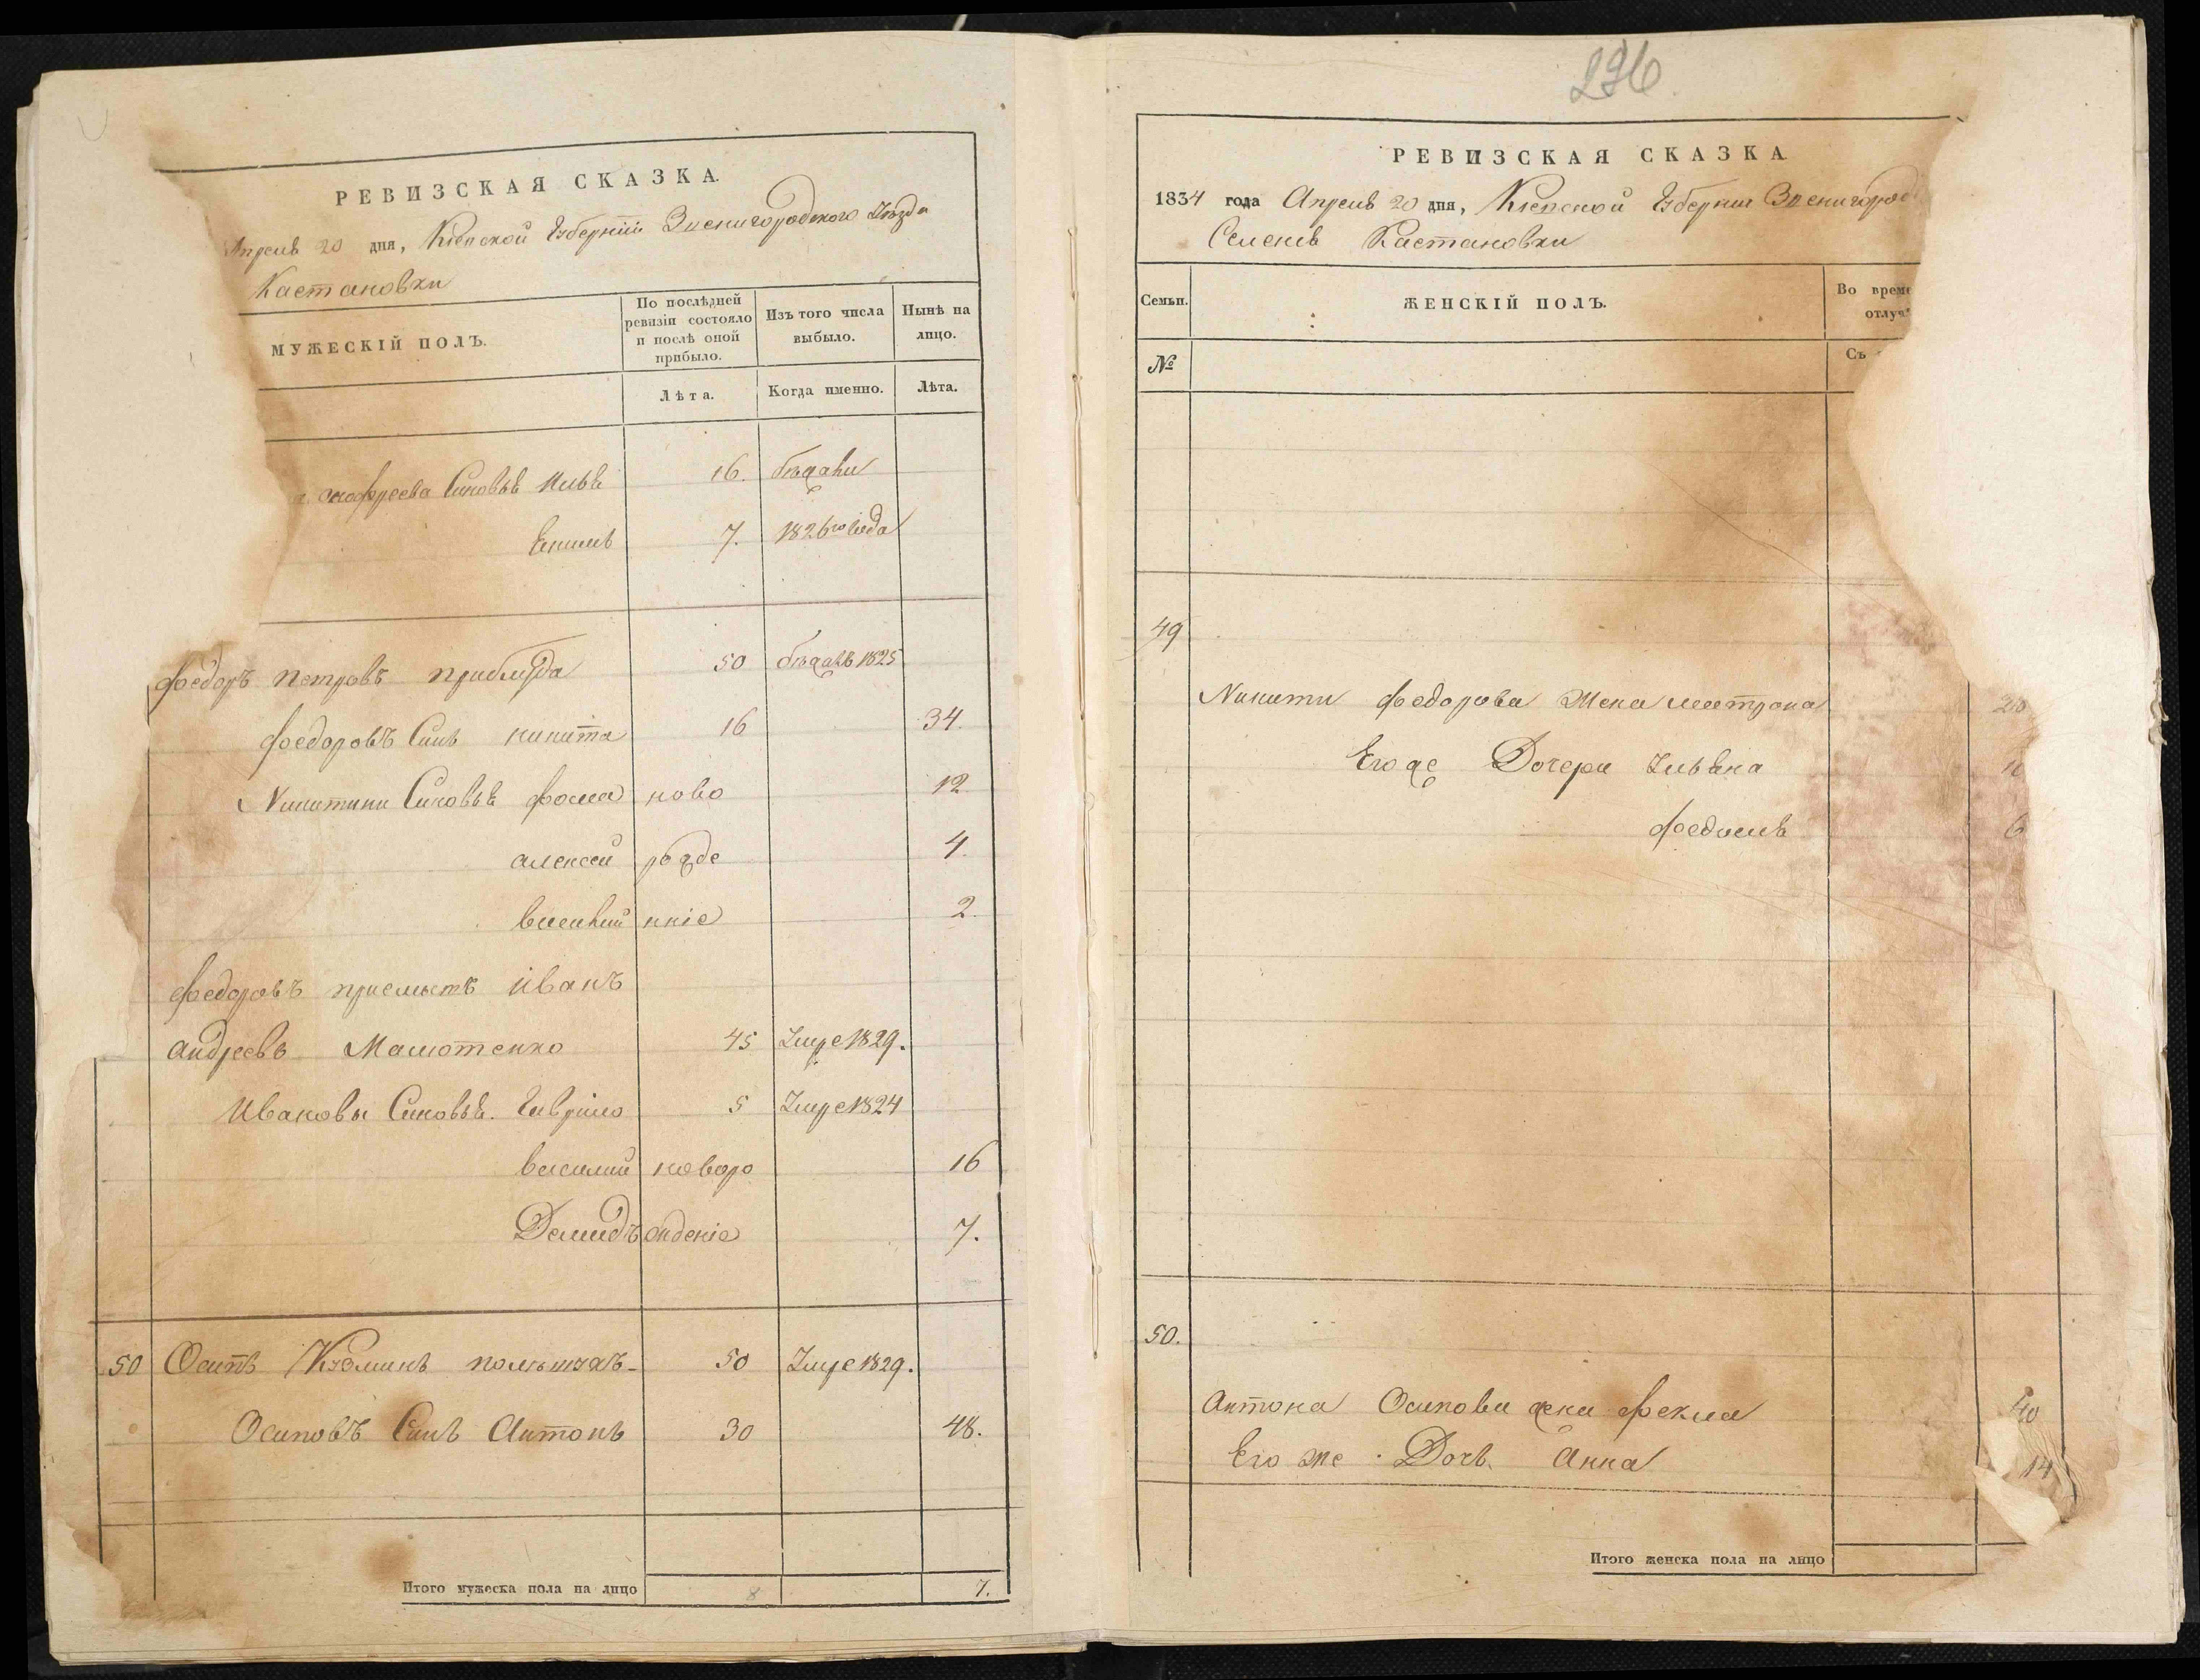 РЕВИЗСКАЯ СКАЗКА.
Апреля 20 дня, Кіевской Губерніи Звенигородского Уѣзда
Кастановки
МУЖЕСКІЙ ПОЛЪ.
По послѣдней ревизіи состояло и послѣ оной прибыло.
Изъ того числа выбыло.
Нынѣ на лицо.
Лѣта.
Когда именно.
Лѣта.
онофреева Синовья Илья 16. бѣжали
7. 1826го года
Федоръ Петровъ Приблуда 50 бѣжалъ 1825
Федоровъ Синъ Никита 16 34.
Никитини Синовья Фома ново 12
Алексей рожде 4
Василий нніе 2.
Федоровъ приемышъ Иванъ
Андреевъ Малютенко 45 Умре 1829.
Ивановы Синовья. Гаврило 5 Умре 1824
Василий новоро 16
Демидъ жденіе 7.
50 Осипъ Кузминъ 50 Умре 1829.
Осиповъ Синъ Антонъ 30 48.
Итого мужеска пола на лицо 8 7.
296
РЕВИЗСКАЯ СКАЗКА
1834 года Апреля 20 дня, Кіевской Губерніи Звенигород
Селенія Кастановки
Семьи.
ЖЕНСКІЙ ПОЛЪ.
Во време
отлуч
№
Съ
49
Никити Федорова Жена Матрона
Его же Дочери Ульяна
Федосия 6
50.
Антона Осипова жена Фекла 40
Его же Дочь Анна 14
Итого женска пола на лицо